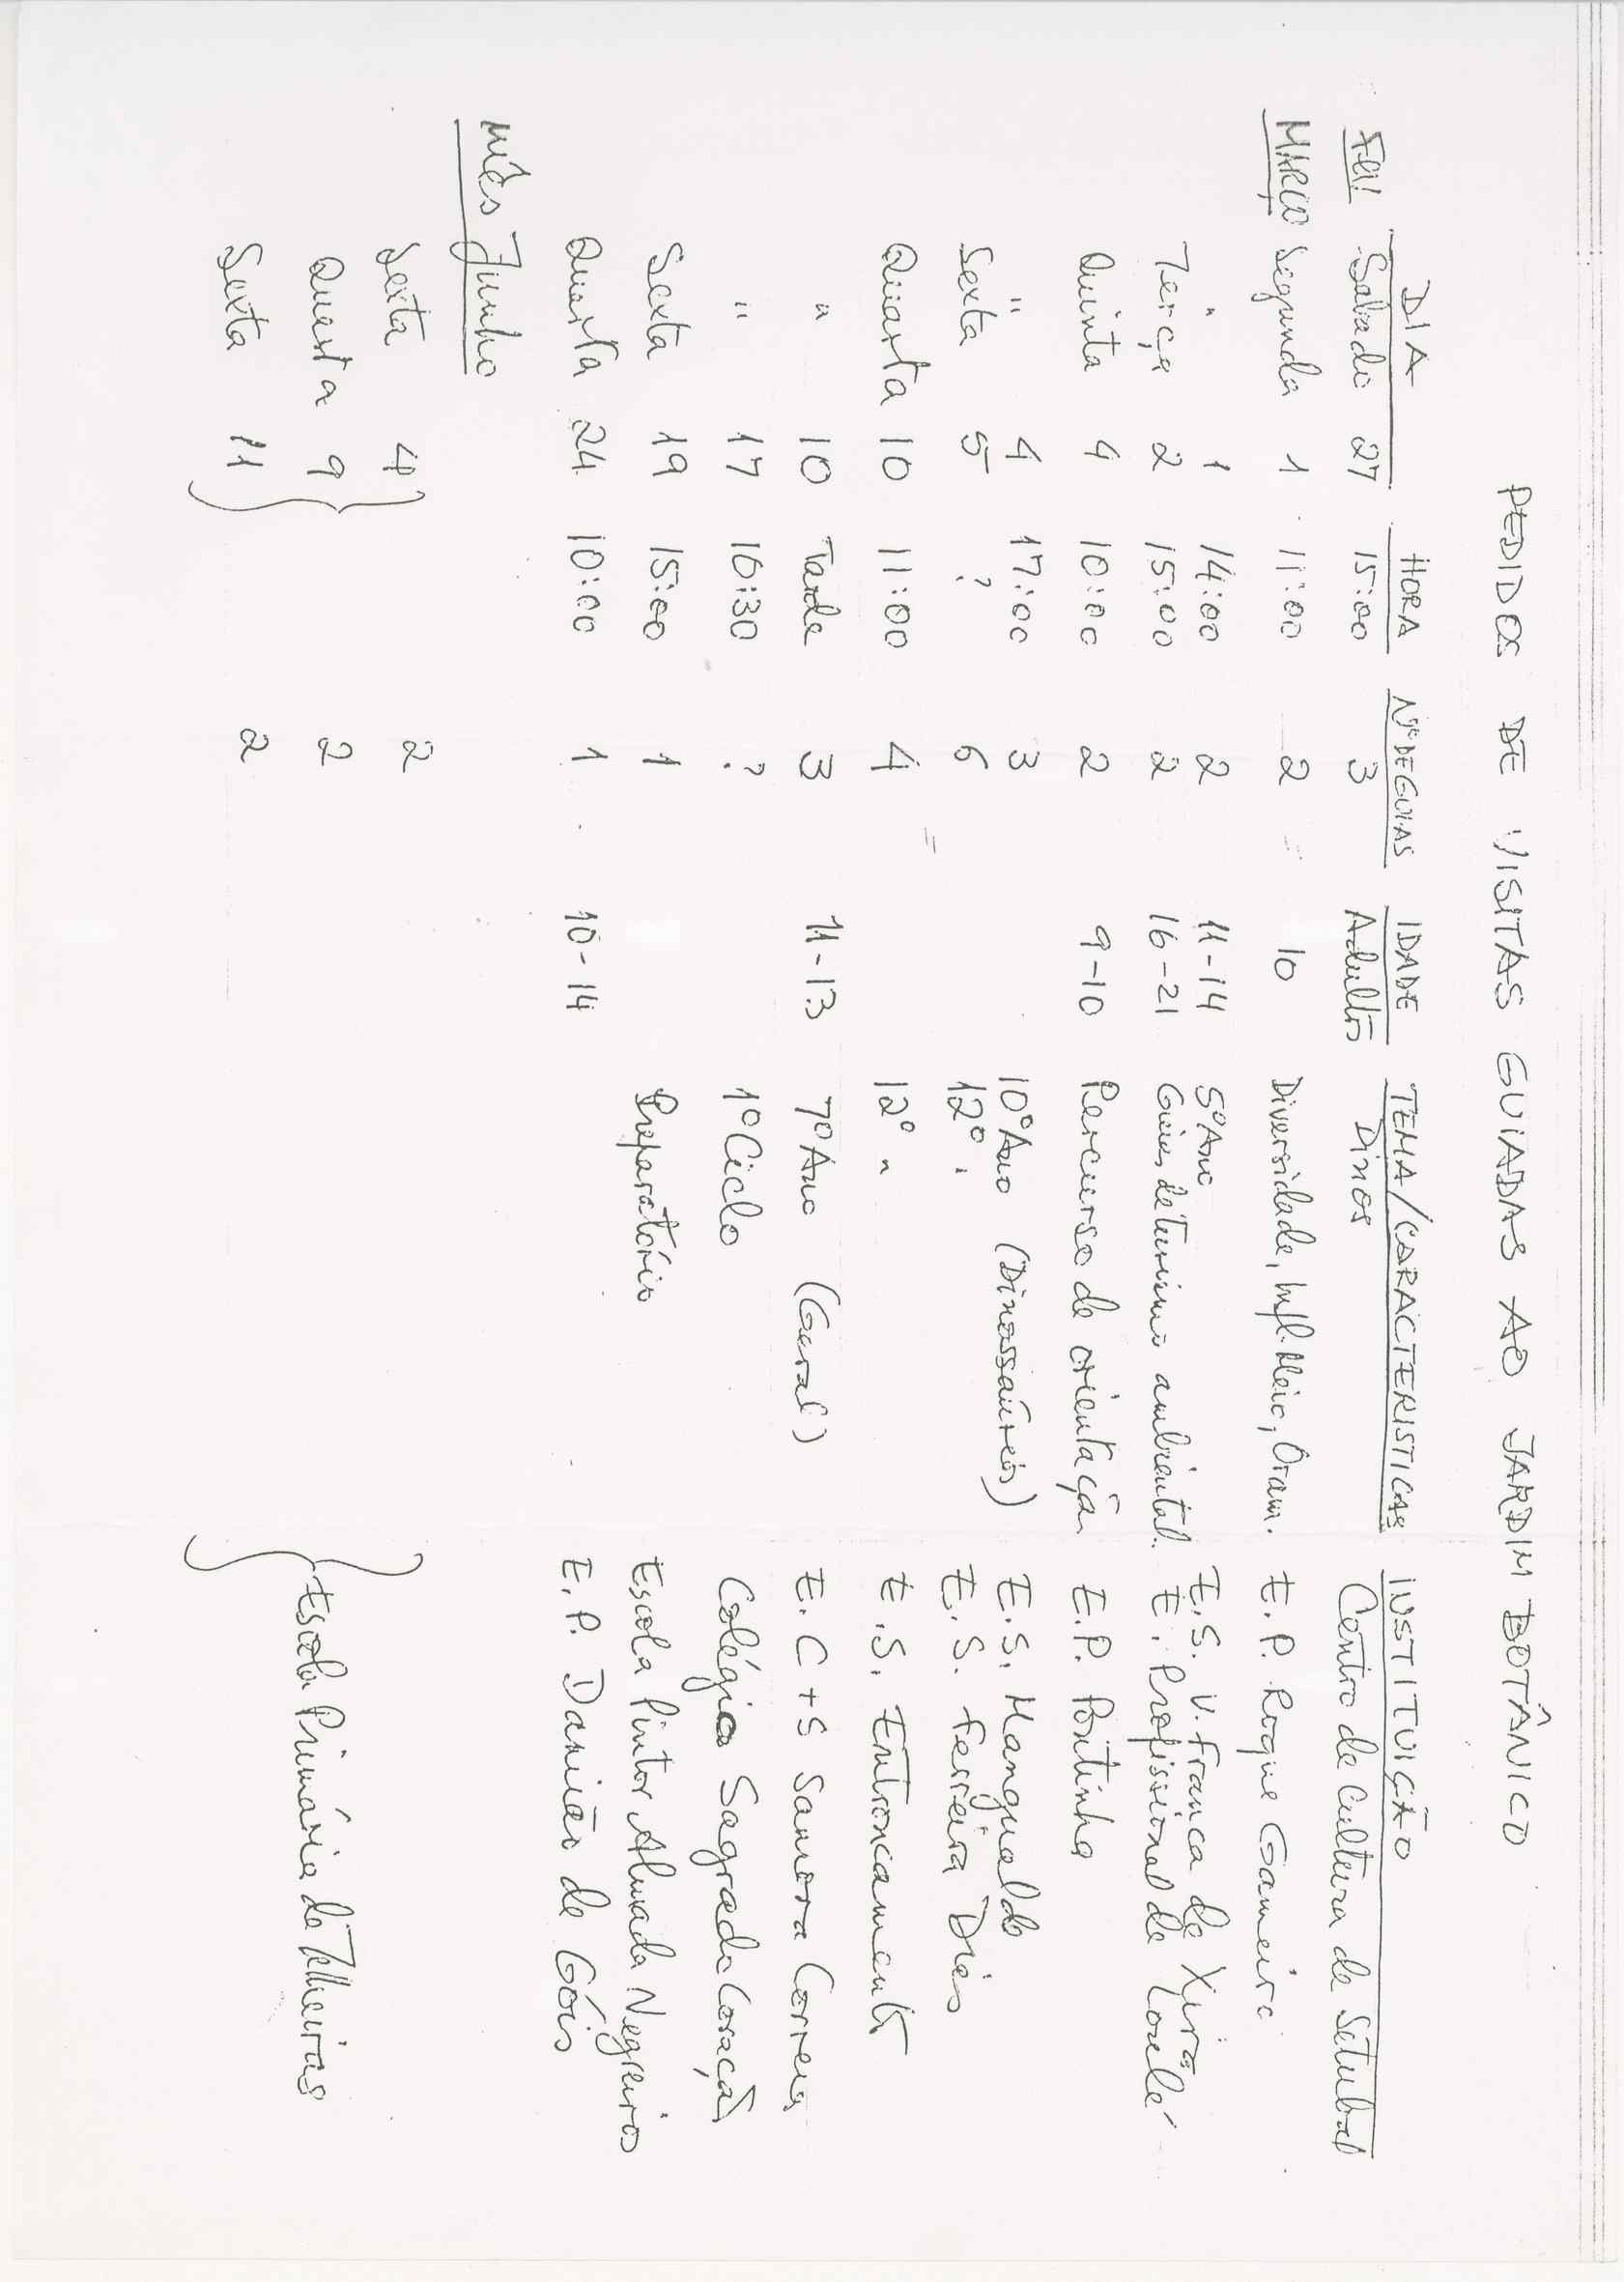 PEDIDOS DE VISITAS GUIADAS AO JARDIM BOTÂNICO
DIA HORA Nº DE GUIAS IDADE TEMA/CARACTERISTICAS INSTITUIÇÃO
FEV. Sabado 27 15:00 3 Adultos Dinos Centro de Cultura de Setubal
MARÇO Segunda 1 11:00 2 10 Diversidade, Infl. Meio, Oram. E. P. Roque Gameiro
" 1 14:00 2 11-14 5º Ano E. S. V. Franca de Xira
Terça 2 15:00 2 16-21 Guias de turismo ambiental. E. Profissional de Loulé
Quinta 4 10:00 2 9-10 Percurso de orientação E. P. Pontinha
" 4 17:00 3 10º Ano (Dinossáurios) E. S. Mangualde
Sexta 5 ? 6 12º " E. S. Ferreira Dias
Quarta 10 11:00 4 12º " E. S. Entroncamento
" 10 Tarde 3 11-13 7º Ano (Geral) E. C + S Samora Correia
" 17 16:30 ? 1º Ciclo Colégio Sagrado Coração
Sexta 19 15:00 1 Preparatório Escola Pintor Almada Negreiros
Quarta 24 10:00 1 10-14 E. P. Damião de Góis
Mês Junho
Sexta 4 2
Quarta 9 2 Escola Primária de Telheiras
Sexta 11 2